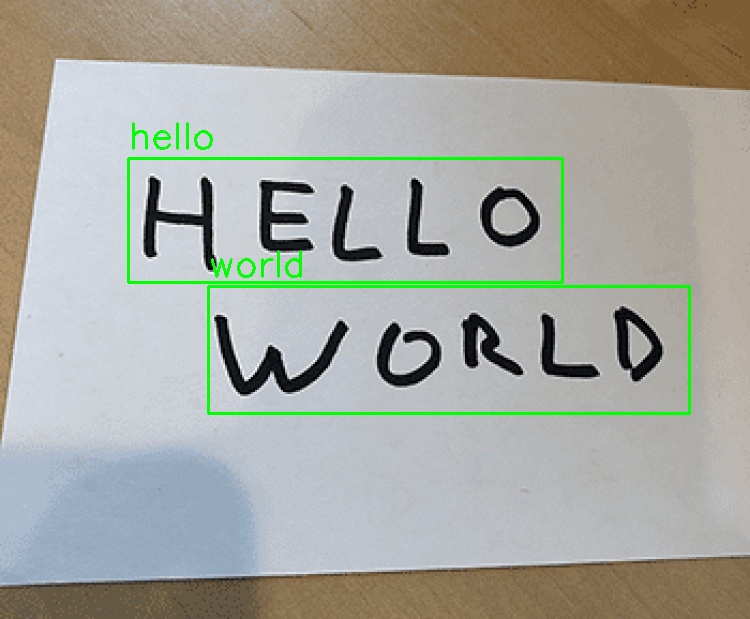 hello
HELLO
world
WORLD